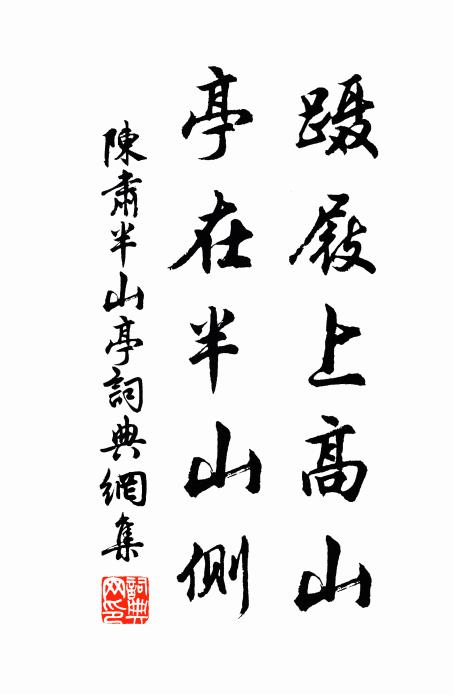 蹑屐上高山
亭在半山侧
陳肅半山亭詞典網集
詞典网印